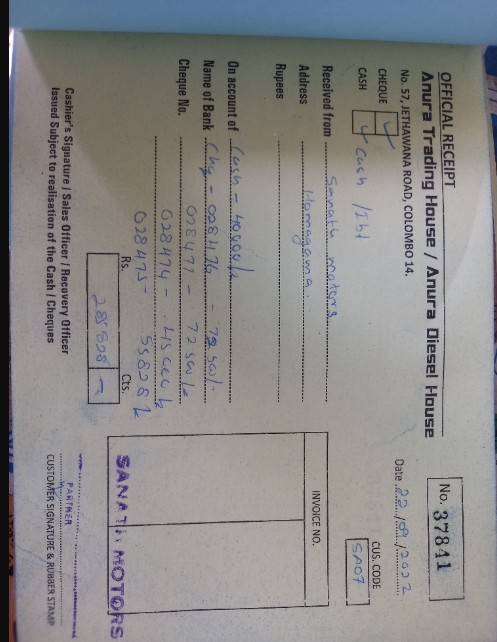 OFFICIAL RECEIPT
Anura Trading House / Anura Diesel House
No. 57, JETHAWANA ROAD, COLOMBO 14.
No. 37841
Date 22/09/2022
CUS. CODE
SA07
CHEQUE
CASH
Cash /
Received from Sanath motors
Address Homagama.
Rupees
INVOICE NO.
On account of Cash - 40000/=
Name of Bank Chq - 028476 - 72500/-
Cheque No. 028477 - 72500/=
028474 - 45000/=
028475 - 55828/=
Rs. Cts.
285828
Cashier's Signature / Sales Officer / Recovery Officer
Issued Subject to realisation of the Cash / Cheques
SANATH MOTORS
PARTNER
CUSTOMER SIGNATURE & RUBBER STAMP